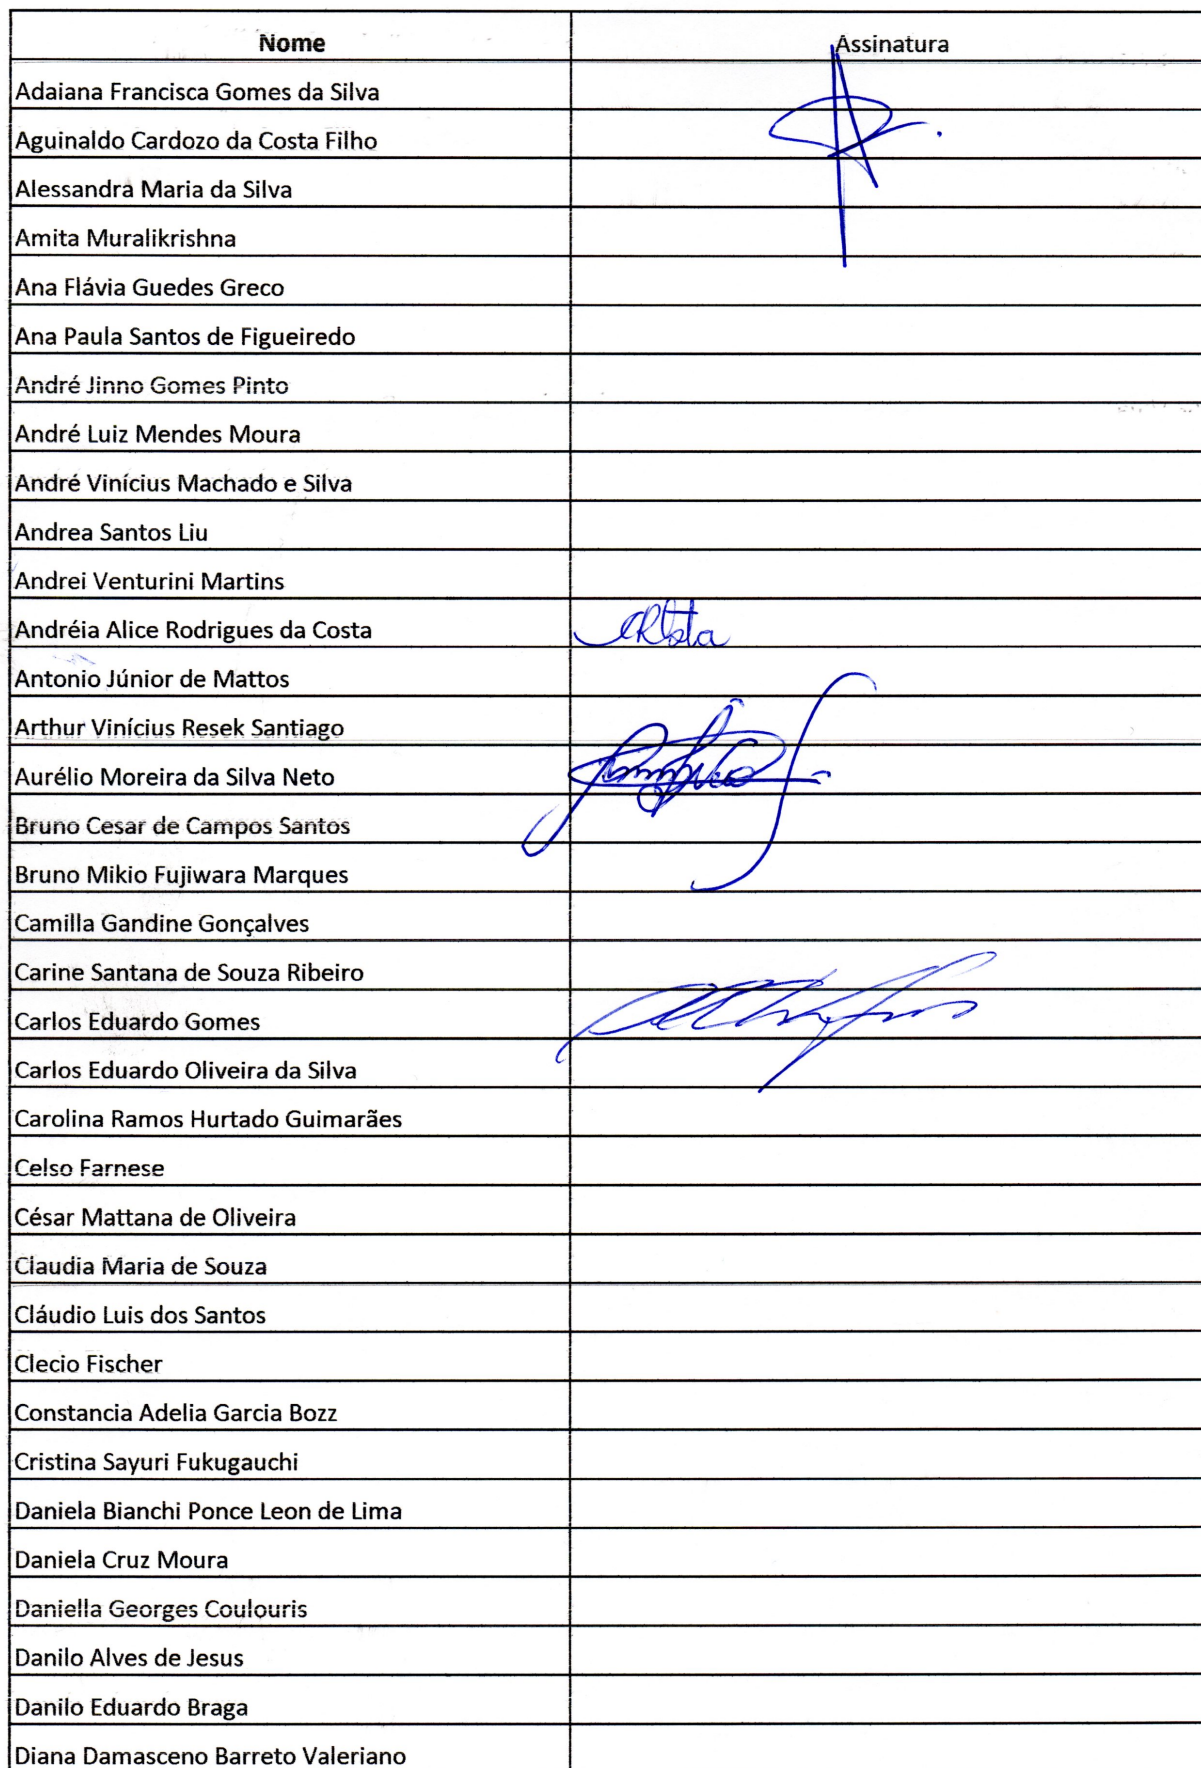 Nome Assinatura
Adaiana Francisca Gomes da Silva
Aguinaldo Cardozo da Costa Filho
Alessandra Maria da Silva
Amita Muralikrishna
Ana Flávia Guedes Greco
Ana Paula Santos de Figueiredo
André Jinno Gomes Pinto
André Luiz Mendes Moura
André Vinícius Machado e Silva
Andrea Santos Liu
Andrei Venturini Martins
Andréia Alice Rodrigues da Costa
Antonio Júnior de Mattos
Arthur Vinícius Resek Santiago
Aurélio Moreira da Silva Neto
Bruno Cesar de Campos Santos
Bruno Mikio Fujiwara Marques
Camilla Gandine Gonçalves
Carine Santana de Souza Ribeiro
Carlos Eduardo Gomes
Carlos Eduardo Oliveira da Silva
Carolina Ramos Hurtado Guimarães
Celso Farnese
César Mattana de Oliveira
Claudia Maria de Souza
Cláudio Luis dos Santos
Clecio Fischer
Constancia Adelia Garcia Bozz
Cristina Sayuri Fukugauchi
Daniela Bianchi Ponce Leon de Lima
Daniela Cruz Moura
Daniella Georges Coulouris
Danilo Alves de Jesus
Danilo Eduardo Braga
Diana Damasceno Barreto Valeriano